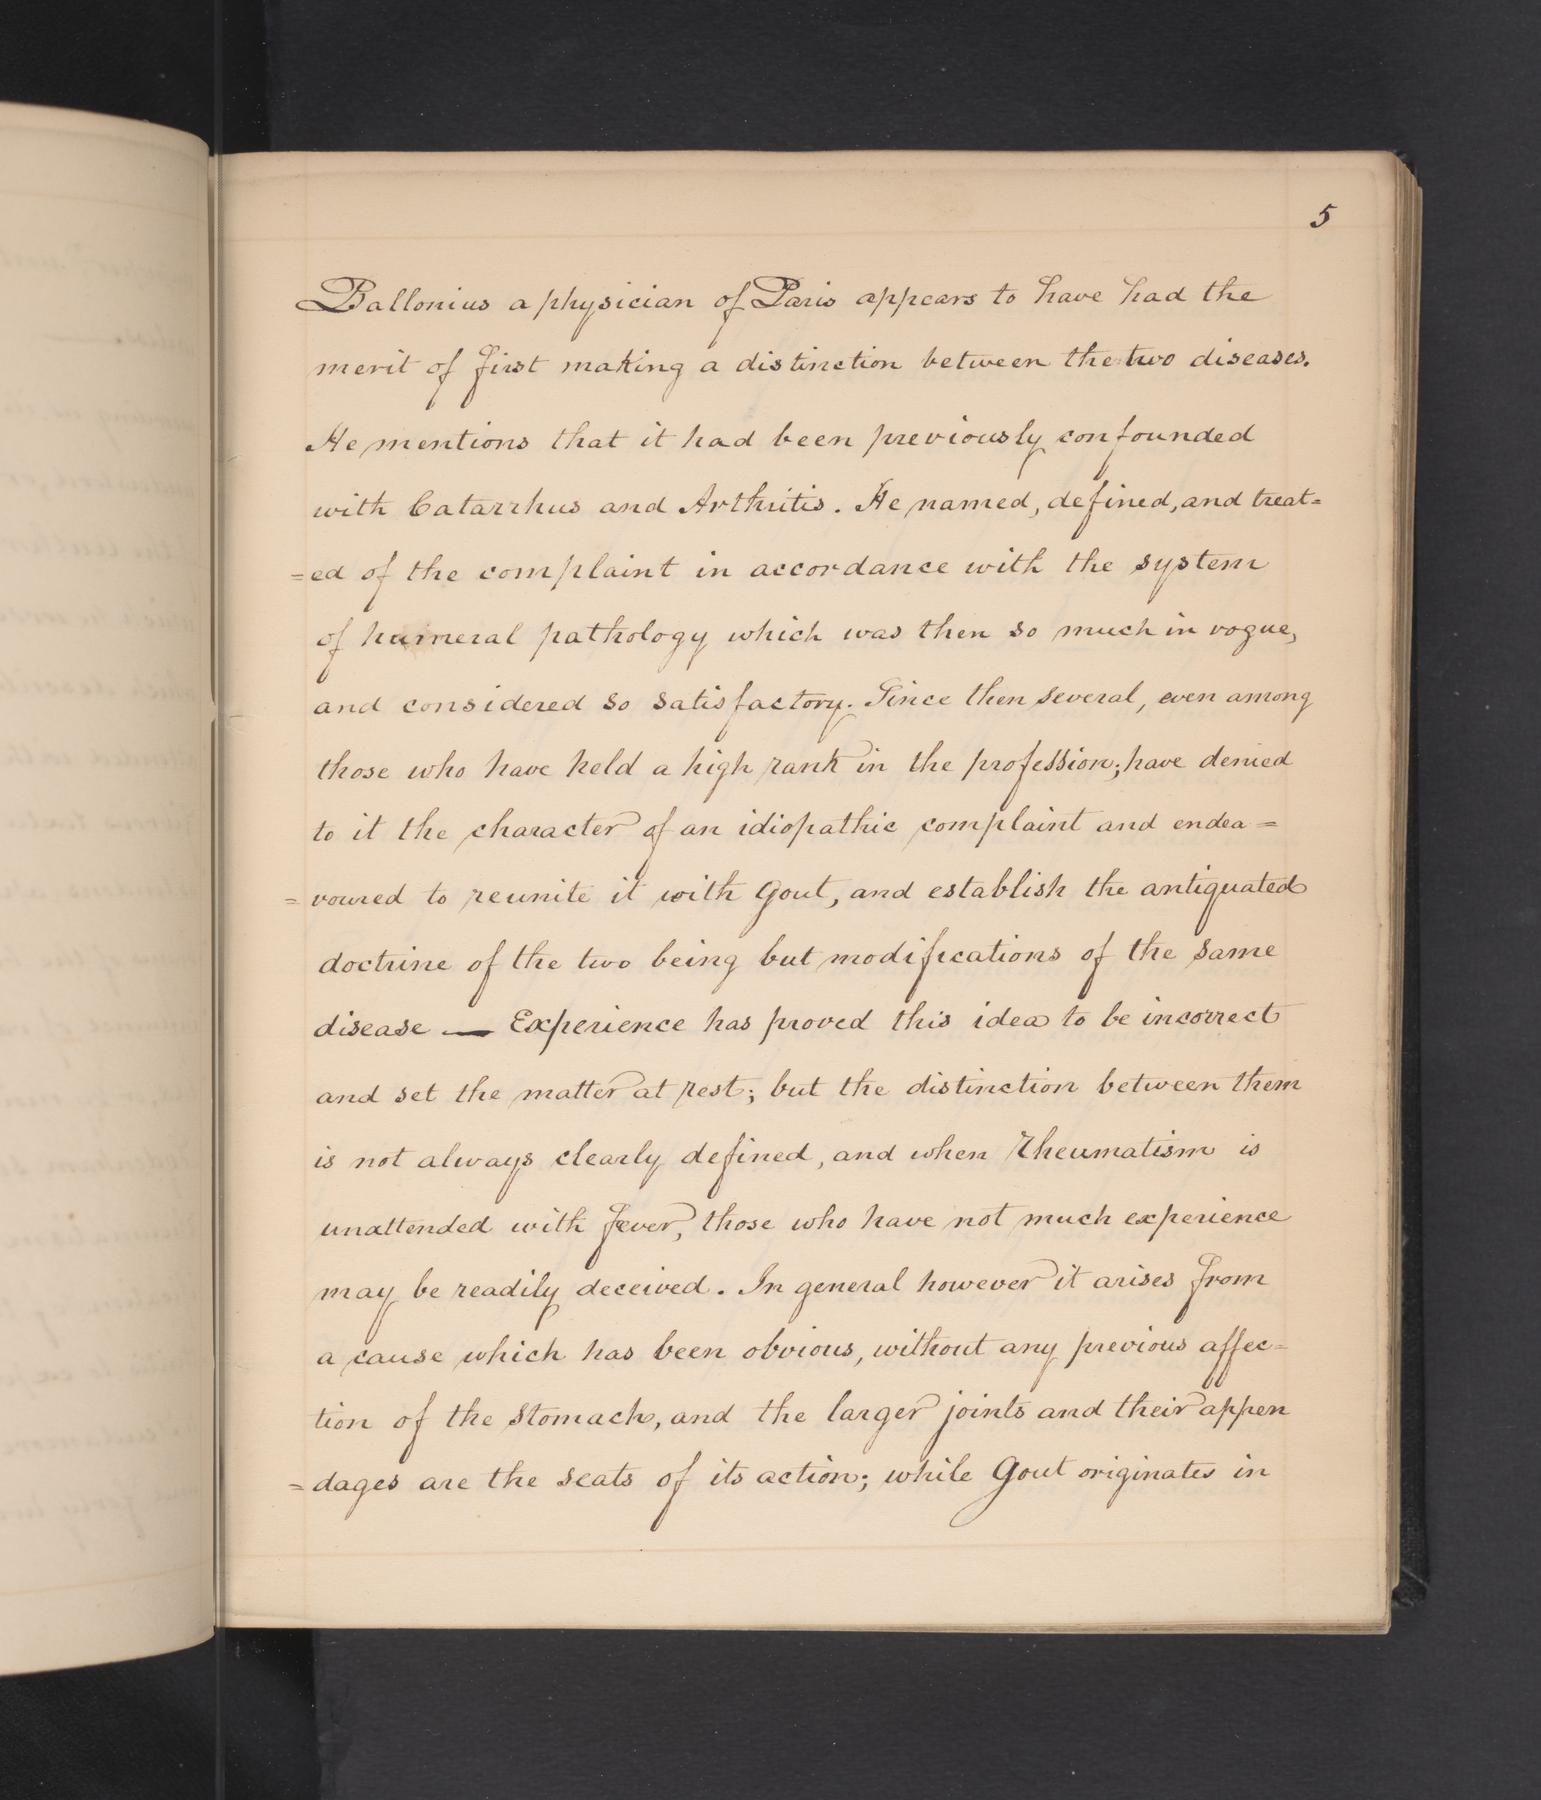 5
Ballonius a physician of Paris appears to have had the
merit of first making a distinction between the two diseases.
He mentions that it had been previously confounded
with Catarrhus and Arthritis. He named, defined, and treat=
=ed of the complaint in accordance with the system
of humeral pathology which was then so much in vogue,
and considered so satisfactory. Since then several, even among
those who have held a high rank in the profession; have denied
to it the character of an idiopathic complaint and endea=
=voured to reunite it with Gout, and establish the antiquated
doctrine of the two being but modifications of the same
disease — Experience has proved this idea to be incorrect
and set the matter at rest; but the distinction between them
is not always clearly defined, and when Rheumatism is
unattended with fever, those who have not much experience
may be readily deceived. In general however it arises from
a cause which has been obvious, without any previous affec=
tion of the stomach, and the larger joints and their appen
=dages are the seats of its action; while Gout originates in